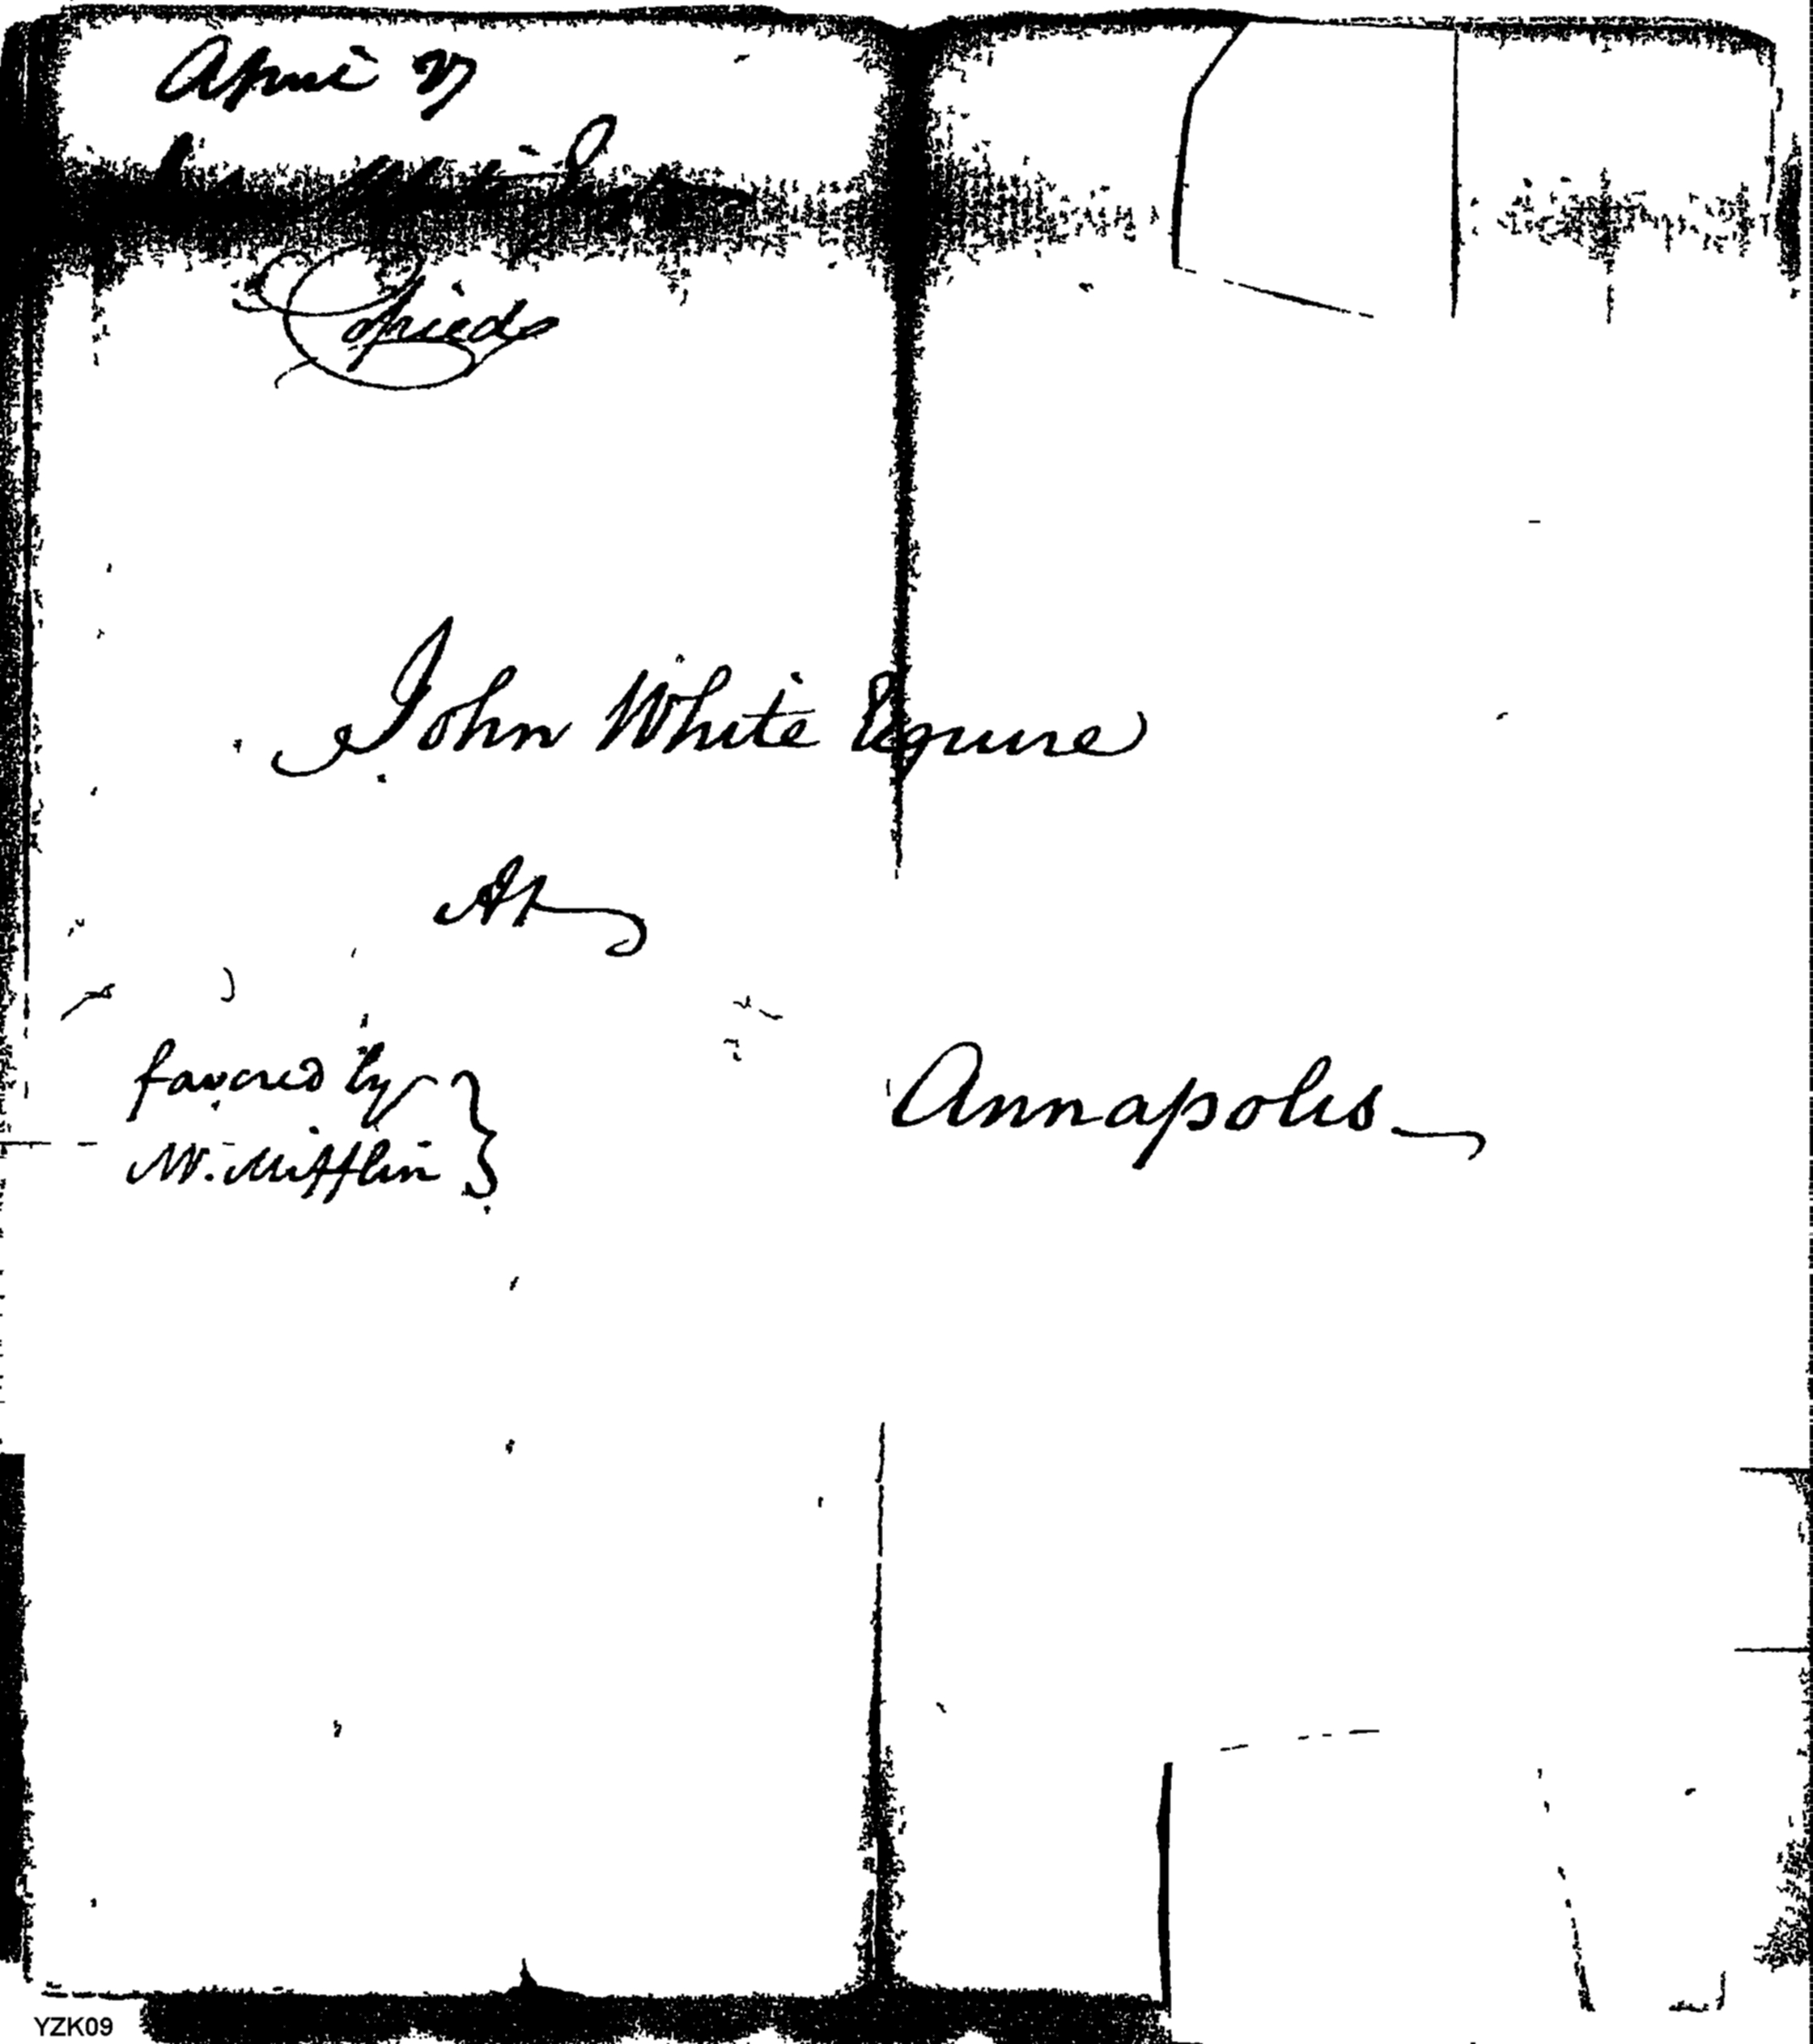 April 27
Copied
John White Esquire
At
favored by
W. Mifflin
Annapolis
YZK09